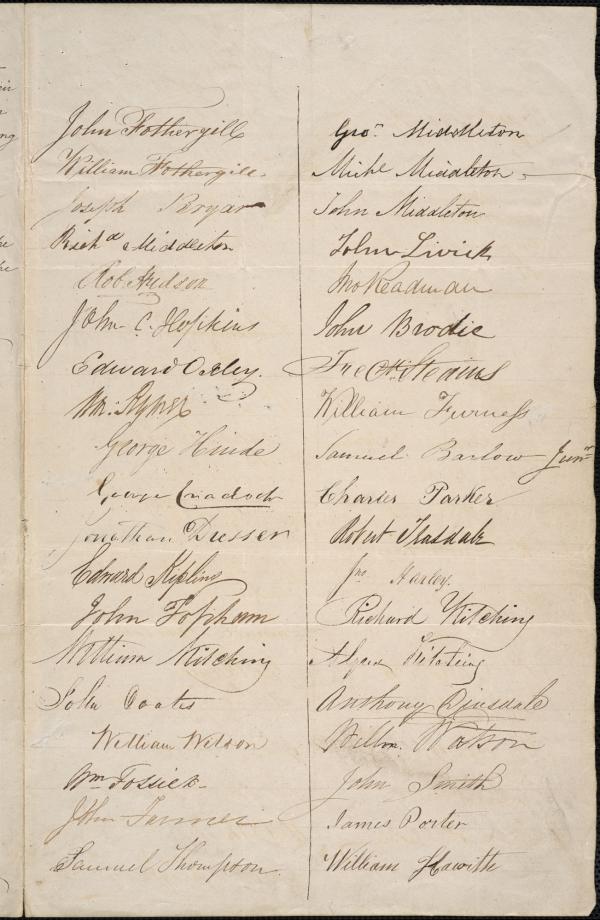 John Fothergill
William Fothergill.
Joseph Pryar
Richd Middleton
Rob Hudson
John C. Hopkins
Edward Oxley.
Wm:
George Hinde
George Cradock
Jonathan Dresser
Edward Kipling
John Topham
William Kitching
John Coates
William Watson
Wm Fossick
John Turner
Samuel Thompson.
Geo. Middleton
Michl Middleton
John Middleton
John Livick
Jno Readman
John Brodie
Stevens
William Furness
Samuel Barlow Junr
Charles Parker
Robert Teasdale
Jno Harley.
Richard Kitching
Kitching
Anthony Dinsdale
Willm. Watson
John Smith
James Porter
William Hawith